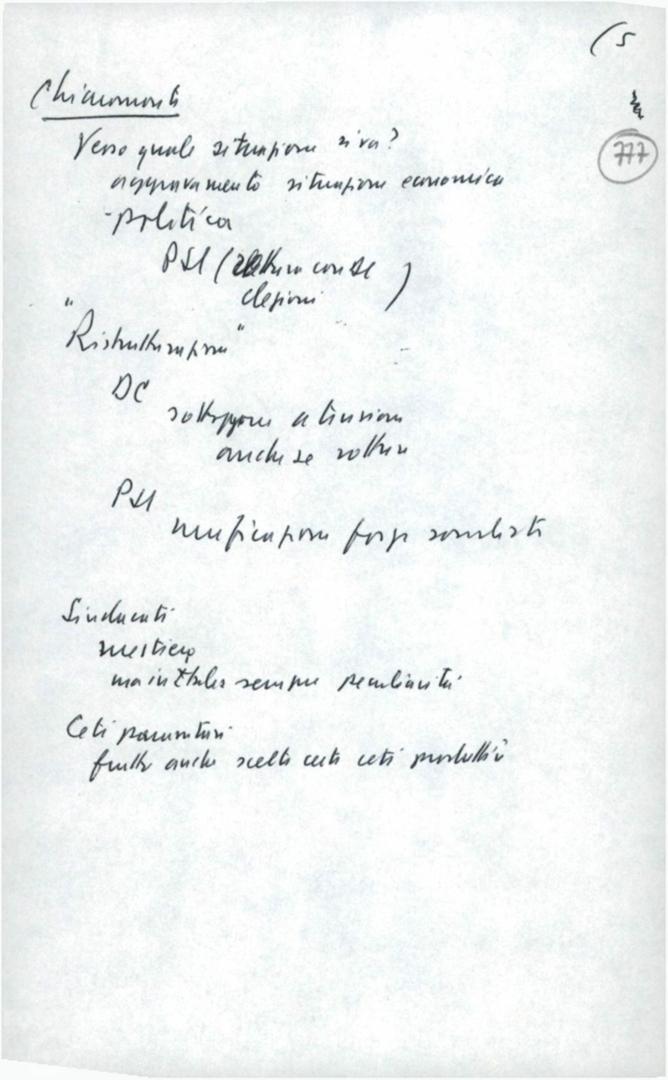 (5
777
Chiaromonte
Verso quale situazione si va?
aggravamento situazione economica
- politica
PSI ( rottura con DC
elezioni )
"Ristrutturazione"
DC
sottoporre a tensioni
anche se rotture
PSI
unificazione forze socialiste
Sindacati
mestiere
ma in Italia sempre peculiarità
Ceti parassitari
frutto anche scelte certi ceti produttivi